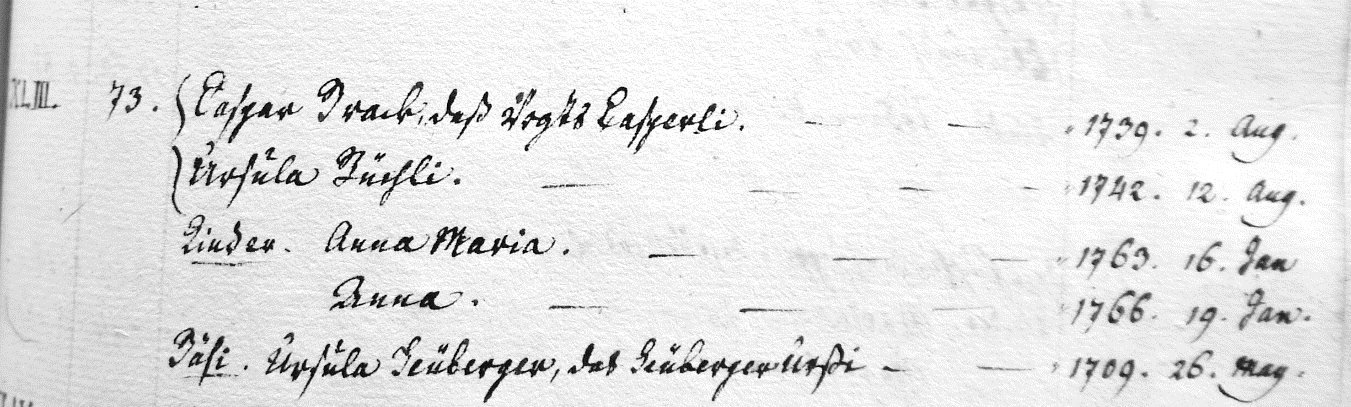 XLIII. 73. Caspar Track, deß Vogts Casperli. — — 1739. 2. Aug.
Ursula Büchli. — — — — 1742. 12. Aug.
Kinder. Anna Maria. — — — 1763. 16. Jan
Anna. — — 1766. 19. Jan.
Bäsi. Ursula Leüberger, des Leüberger Urßi — — 1709. 26. May.